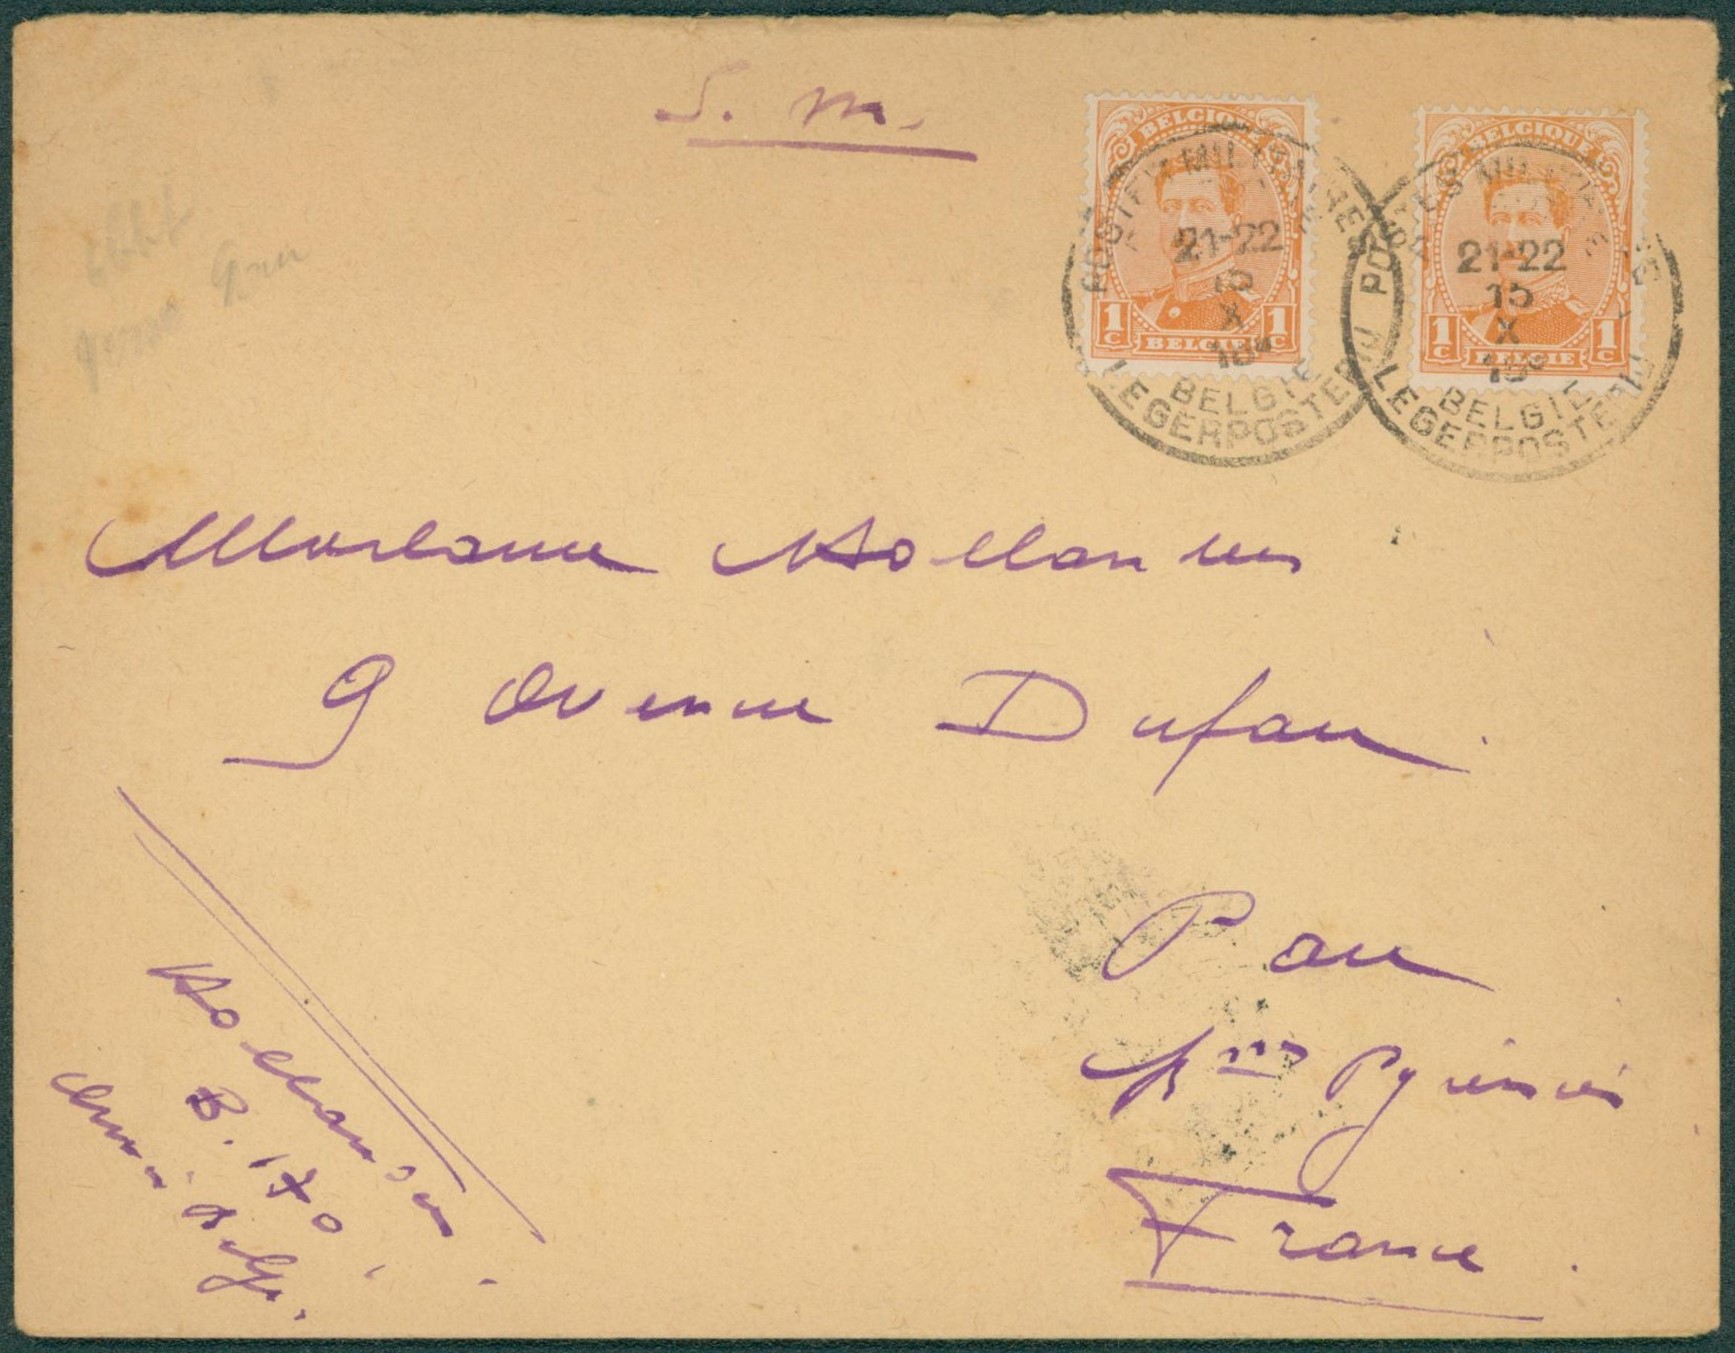 S. M.
BELGIQUE
1c 1c
BELGIE
BELGIQUE
1c 1c
BELGIE
POSTES MILITAIRES
21-22
15
X
18
BELGIE
LEGERPOSTERIJ
POSTES MILITAIRES
21-22
15
X
18
BELGIE
LEGERPOSTERIJ
Madame Hollander
9 avenue Dufau
Pau
Bses Pyrénées
France
Hollander
B. 170
Armée belge.